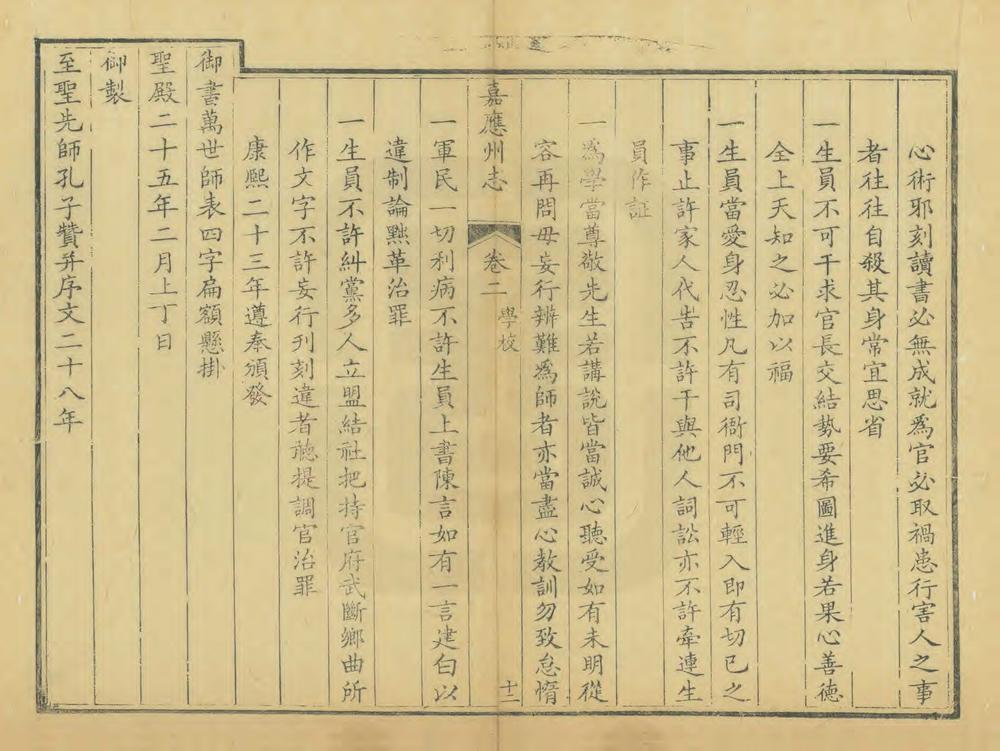 心術邪刻讀書必無成就爲官必取禍患行害人之事
者往往自殺其身常宜思省
一生員不可干求官長交結勢要希圖進身若果心善德
全上天知之必加以福
一生員當愛身忍性凡有司衙門不可輕入即有切已之
事止許家人代告不許干與他人詞訟亦不許牽連生
員作証
一爲學當尊敬先生若講說皆當誠心聽受如有未明從
容再問毋妄行辨難爲師者亦當盡心教訓勿致怠惰
嘉應州志
卷二
學校
十二
一軍民一切利病不許生員上書陳言如有一言建白以
違制論黜革治罪
一生員不許糾黨多人立盟結社把持官府武斷鄉曲所
作文字不許妄行刊刻違者聽提調官治罪
康熙二十三年遵奉頒發
御書萬世師表四字扁額懸掛
聖殿二十五年二月上丁日
御製
至聖先師孔子贊并序文二十八年